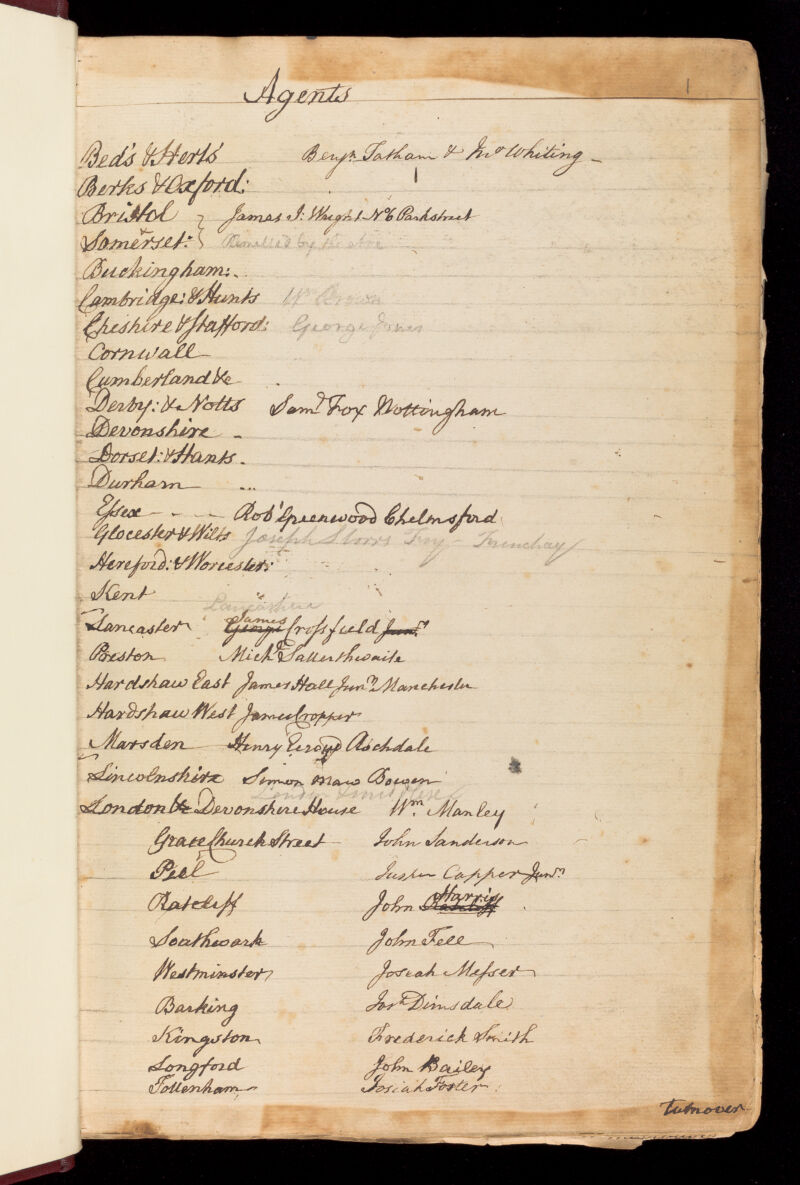 1
Agents
Bed's & Herts Benjn. Tatham & Jno Whiting
Berks & Oxford: 1
Bristol } James J: Wright No 6 Park street
Somerset: } Remitted by the above
Buckingham:
Cambridge: & Hunts Wm Brown
Cheshire & Stafford: George Jones
Cornwall
Cumberland &c
Derby: & Notts Saml. Fox Nottingham
Devonshire
Dorset: & Hants
Durham
Essex Robt Greenwood Chelmsford
Glocester & Wilts Joseph Storrs Fry - Frenchay
Hereford: & Worcester:
Kent
Lancashire
Lancaster George James Crosfield Junr.
Preston Michl. Satterthwaite
Hardshaw East James Hall Junr. Manchester
Hardshaw West James Cropper
Marsden Henry Ecroyd Rochdale
Lincolnshire Simon Maw
London & Middlesex
London &c Devonshire House Wm. Manley
Grace Church Street John Sanderson
Peel Jasper Capper Junr.
Ratcliff John Harris
Southwark John Fell
Westminster Josiah Messer
Barking Josh Dimsdale
Kingston Frederick Smith
Longford John Bailey
Tottenham Josiah Forster
turn over